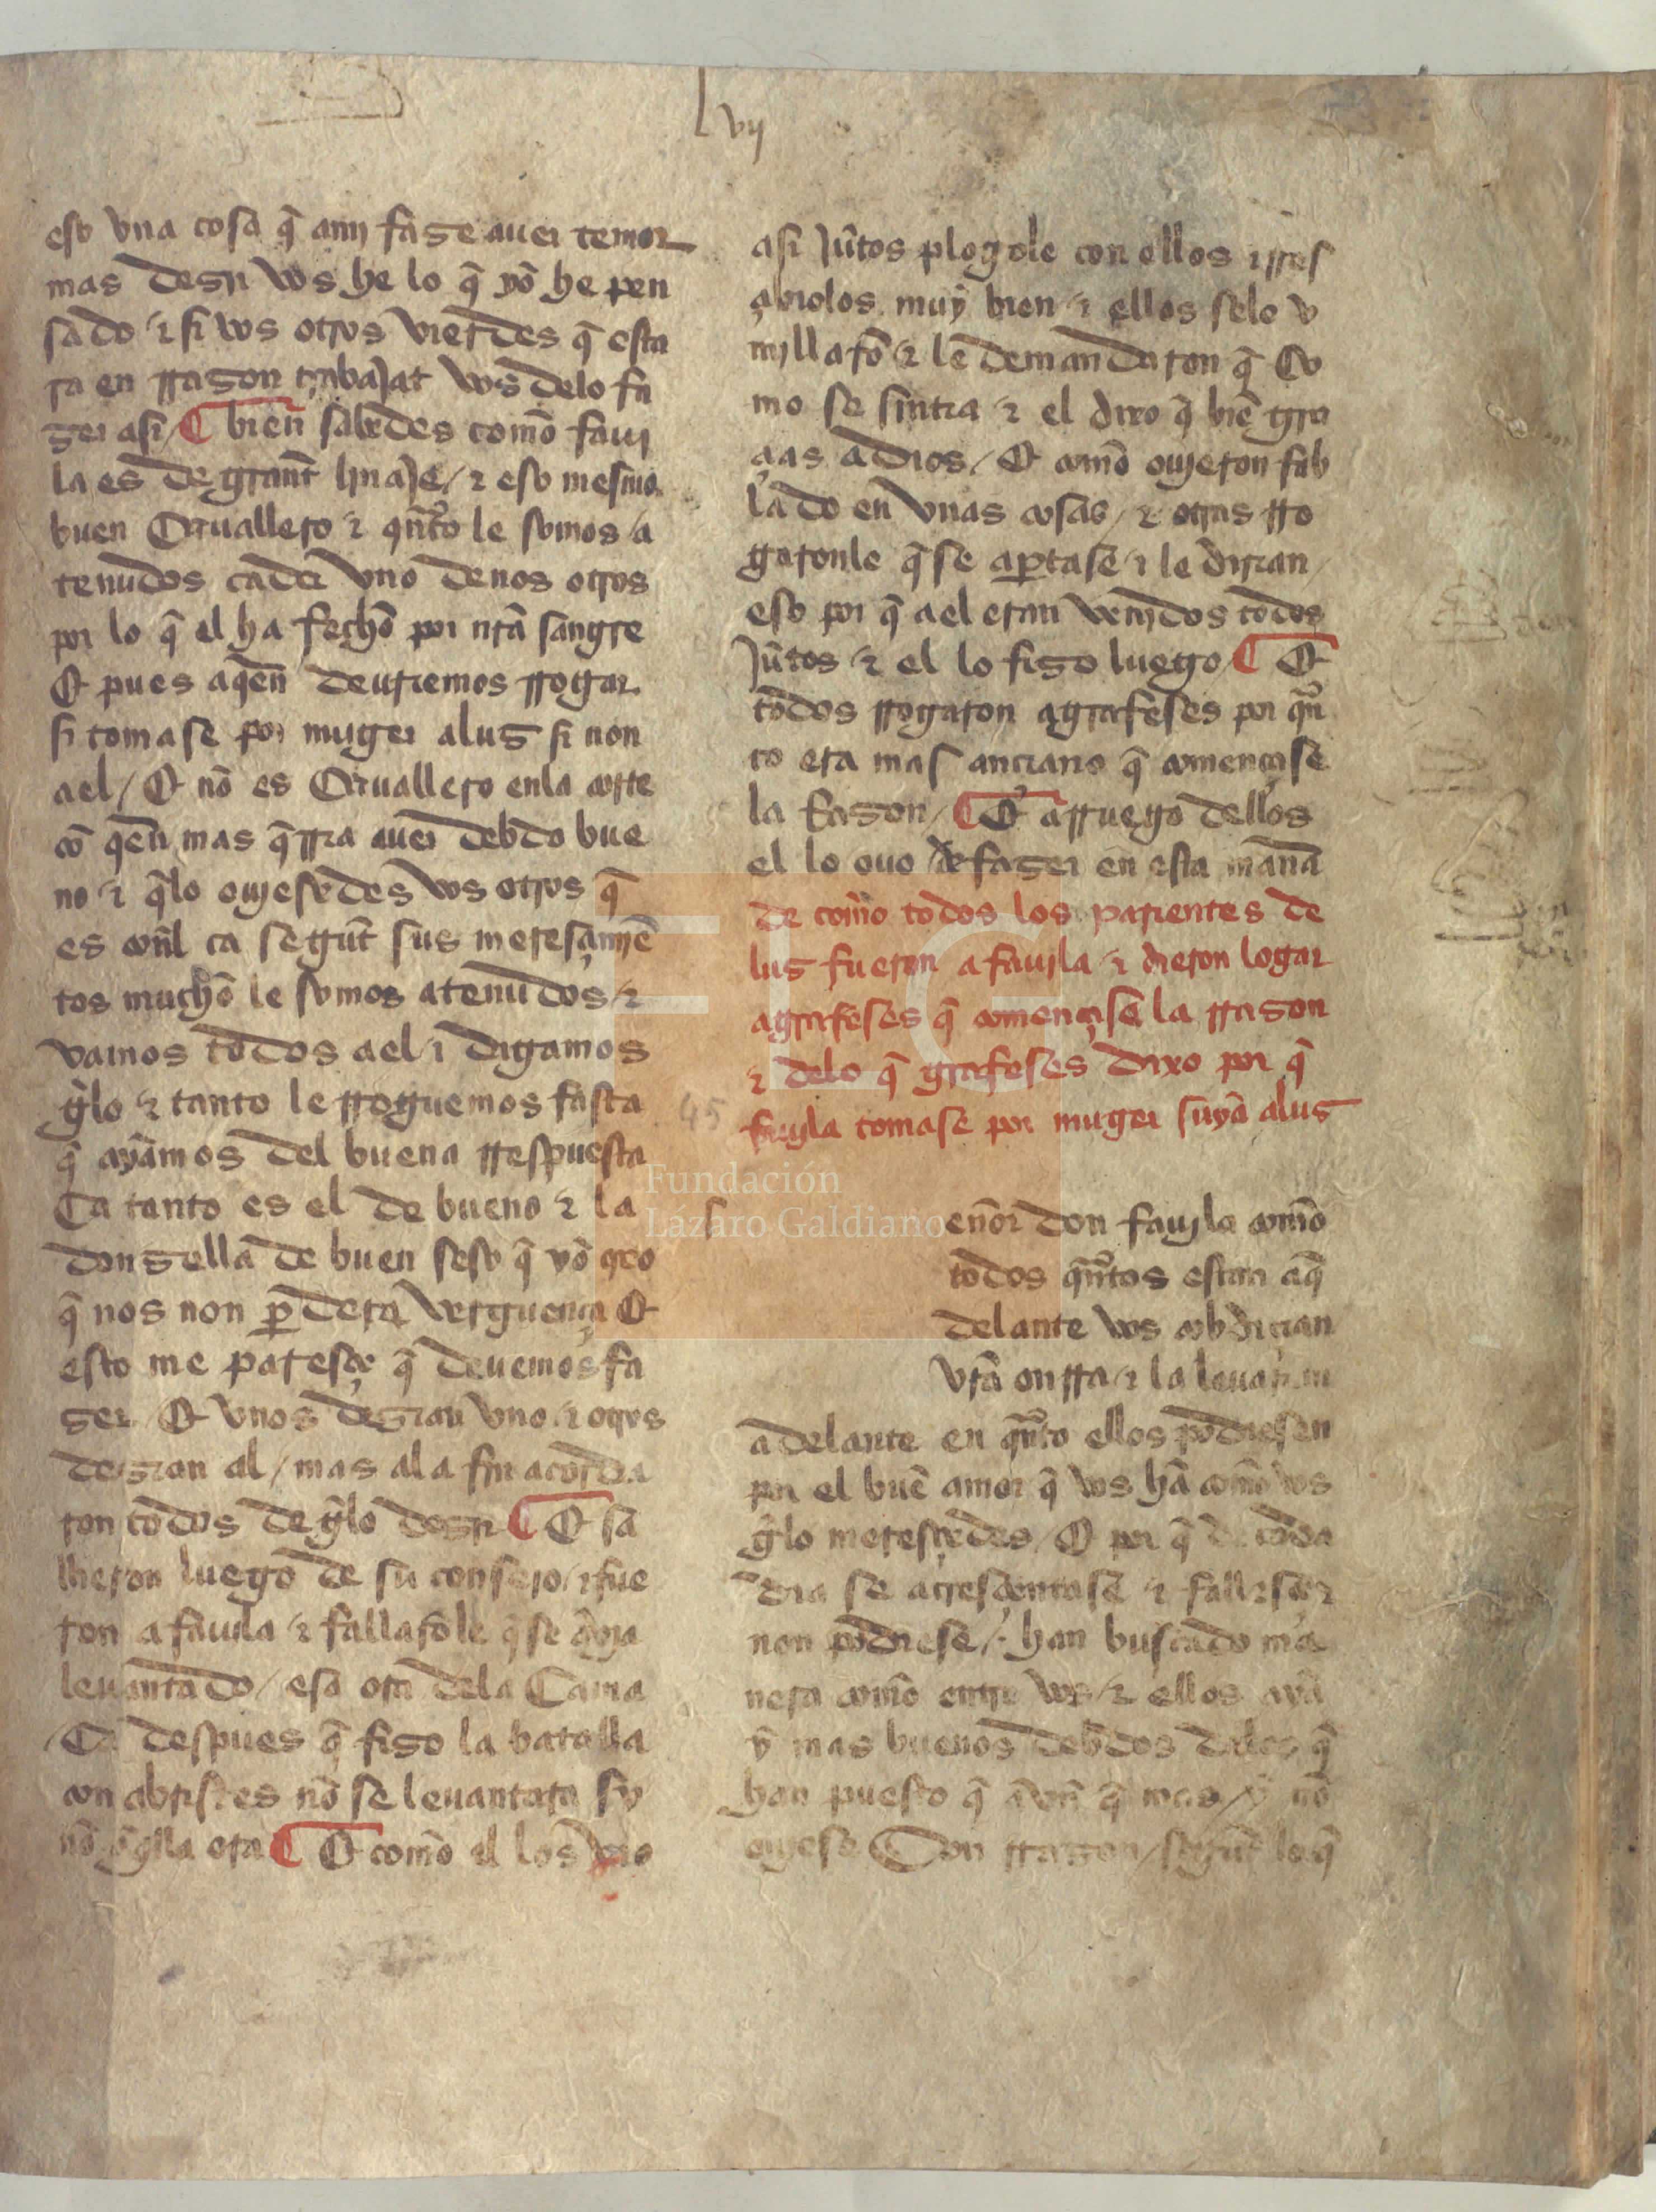 Lvij
eso vna cosa q̃ amj faze auer temor
mas dezir vos he lo q̃ yo he pen
sado / ⁊ si vos otros vierdes q̃ esta
ra en rrazon trabajat vos delo fa
zer asi / ¶ bien sabedes como fauj
la es de grant ljnaje / ⁊ eso mesmo
buen Cauallero ⁊ qñto le somos / a
tenudos cada vno de nos otros
por lo q̃ el ha fecho por nr̃a sangre
Et pues aqen deuriemos rrogar
si tomase por muger aluz si non
ael / Et nõ es Cauallero enla corte
cõ qen mas q̃rria auer debdo bue
no ⁊ q̃lo oujesedes vos otros q̃
es conl ca segunt sus meresçimjẽ
tos mucho le somos atenudos / ⁊
vamos todos ael ⁊ digamos
gelo ⁊ tanto le rroguemos fasta
q̃ ayamos del buena rrespuesta
Ca tanto es el de bueno ⁊ la
donzella de buen seso q̃ yo creo
q̃ nos non ꝑdera verguença Et
esto me paresçe q̃ deuemos fa
zer / Et vnos dezian vno / ⁊ otros
dezian al / mas ala fin acorda
ron todos de gelo dezir ¶ Et sa
lieron luego de su consejo / ⁊ fue
ron a fauila ⁊ fallarõle q̃ se auja
leuantado / esa ora dela Cama
Ca despues q̃ fizo la batalla
con abristes nõ se leuantara sy
nõ aq̃lla ora ¶ Et como el los vio
asi Jũtos plogole con ellos ⁊ rres
çibiolos muy bien ⁊ ellos sele v
mjllarõ ⁊ le demandaron q̃ Co
mo se sintia ⁊ el dixo q̃ biẽ gra
çias a dios / Et como oujeron fab
lado en vnas cosas / ⁊ otras rro
garonle q̃ se aꝑtase ⁊ le dirian
eso por q̃ a el eran venjdos todos
Jũtos ⁊ el lo fizo luego / ¶ Et
todos rrogaron agrafeses por qñ
to era mas ançiano q̃ començase
la Razon / ¶ Et a rruego dellos
el lo ouo de fazer en esta manã
de como todos los parientes de
luz fueron a fauila ⁊ dieron logar
agrafeses q̃ començase la rrazon
⁊ delo q̃ grafeses dixo por q̃
fauyla tomase por muger suya aluz
s
enõr don faujla como
todos qñtos estan aq̃
delante vos cobdiçian
vr̃a onrra / ⁊ la leuarian
adelante en qñto ellos podiesen
por el buẽ amor q̃ vos hã como vos
gelo meresçedes / E por q̃ de cada
dia se acresçentase ⁊ fallesçer
non podiese / han buscado ma
nera como entre vos ⁊ ellos aya
ỹ mas buenos debdos delos q̃
han puesto q̃ avn q̃ mas y nõ
oujese Con rrazon / segunt lo q̃
45
FLG
Fundación
Lázaro Galdiano